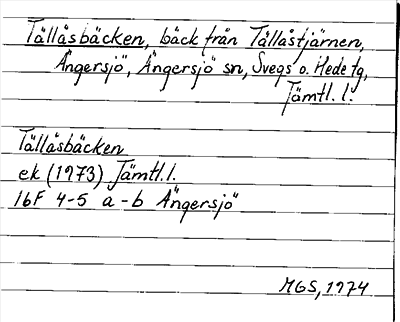 Tällåsbäcken, bäck från Tällåstjärnen,
Ängersjö, Ängersjö sn, Svegs o. Hede tg,
Jämtl. l.
Tällåsbäcken
ek (1973) Jämtl. l.
16F 4-5 a-b Ängersjö
MGS, 1974